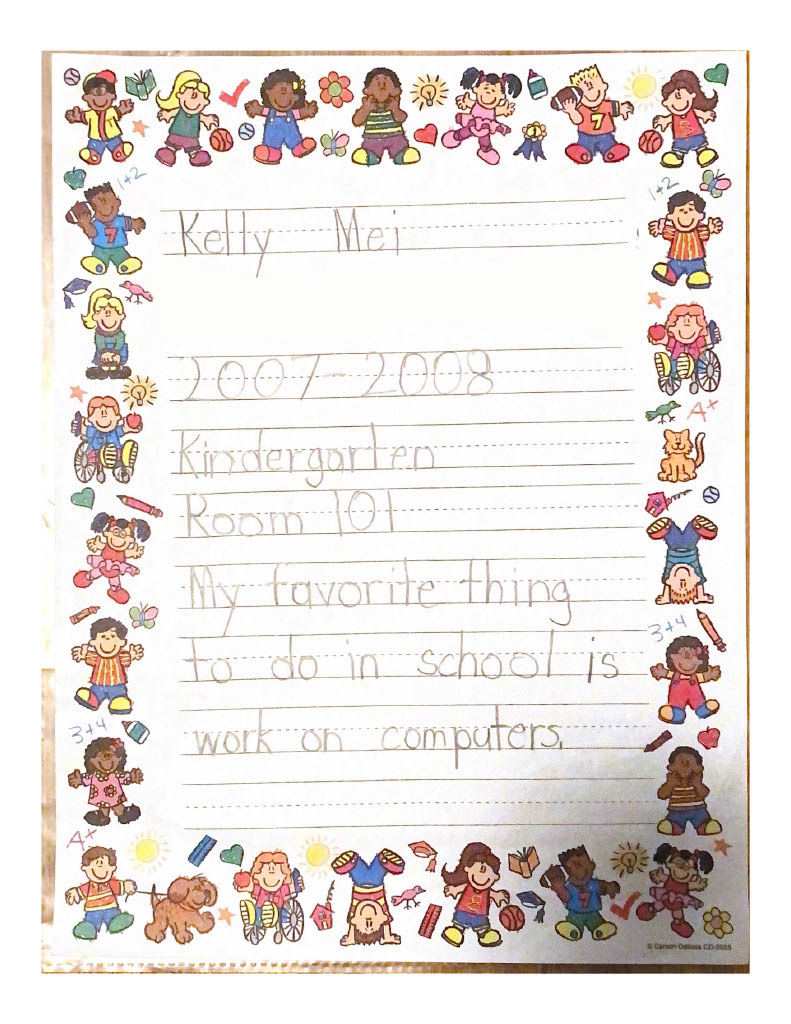 1+2
1+2
Kelly Mei
2007-2008
A+
Kindergarten
Room 101
My favorite thing
3+4
to do in school is
3+4
work on computers.
A+
7
7
7
7
© Carson-Dellosa CD-3555